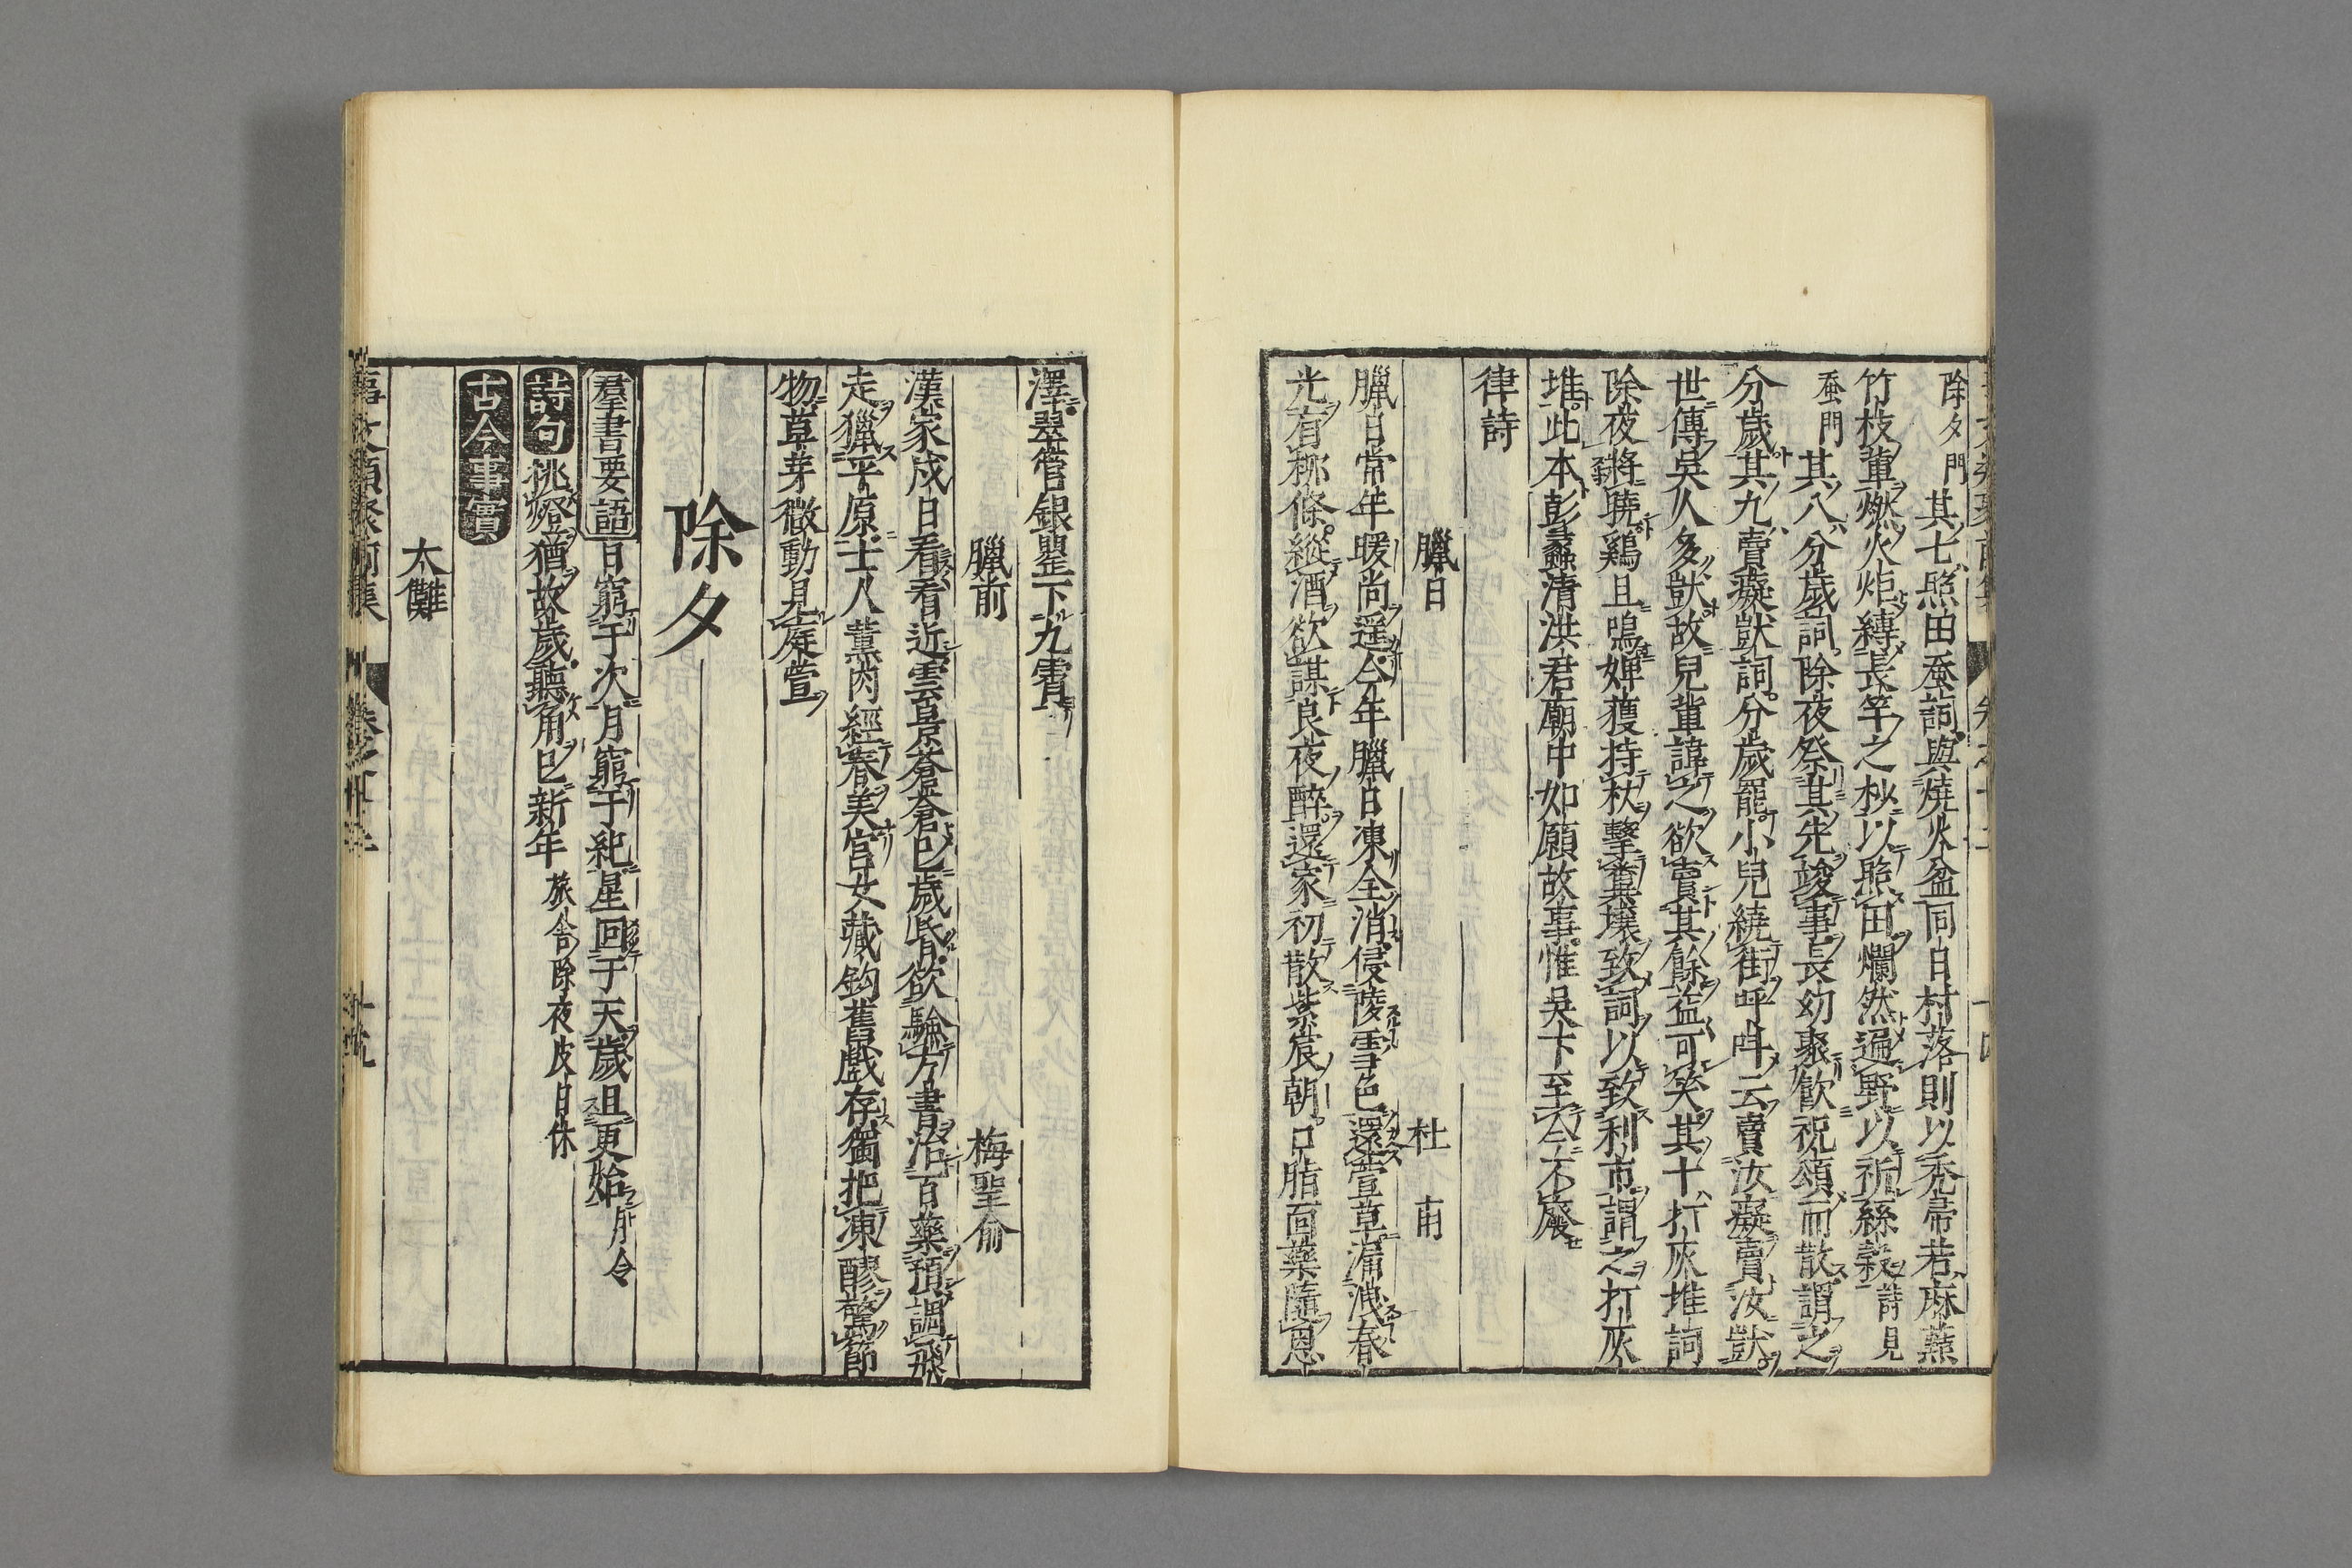 除夕門其七照田蚕詞與燒火盆同日村落則以禿帚若麻䕸
竹枝軰燃火炬縛長竿之杪以照田爛然遍野以祈絲穀詩見
蚕門其八分歲詞除夜祭其先竣事長幼聚飲祝頌而散謂之
分歲其九賣癡獃詞分歲罷小兒繞街呼叫云賣汝癡賣汝獃
世傳吳人多獃故兒軰諱之欲賣其餘益可笑其十打灰堆詞
除夜將曉鷄且鳴婢獲持杖擊糞壤致詞以致利市謂之打灰
堆此本彭蠡清洪君廟中如願故事惟吳下至今不廢
律詩
臘日 杜甫
臘日常年暖尚遥今年臘日凍全消侵陵雪色還萱草漏洩春
光有柳條縱酒欲謀良夜醉還家初散紫宸朝口脂面藥隨恩
澤翠管銀甖下九霄
臘前 梅聖俞
漢家戌日看看近雲景蒼蒼已歲昏欲驗方書治百藥預調飛
走獵平原士人薫肉經春美宮女藏鈎舊戲存獨把凍醪驚節
物草芽微動見庭萱
除夕
羣書要語日窮于次月窮于紀星回于天歲且更始月令
詩句挑燈猶故歲聽角已新年旅舍除夜皮日休
古今事實
大儺
事文類聚前集 卷之十二